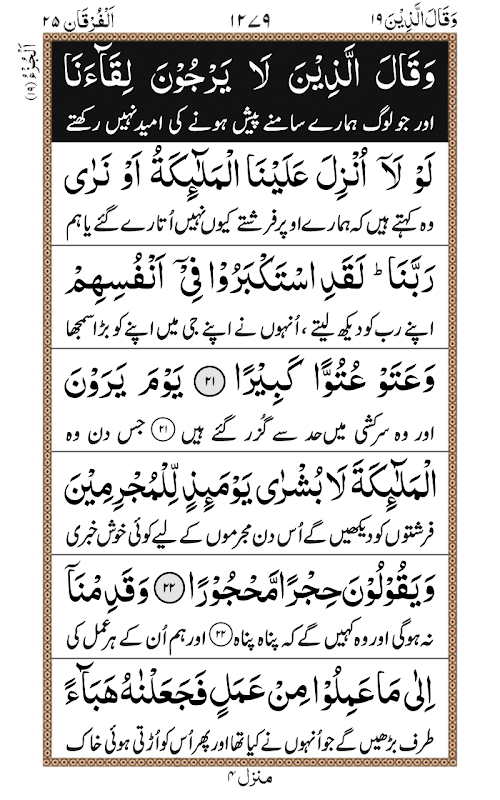 وَقَالَ الَّذِيْنَ ١٩
١٢٧٩
اَلْفُرْقَان ٢٥
اَلْجُزْءُ (١٩)
وَقَالَ الَّذِيْنَ لَا يَرْجُوْنَ لِقَآءَنَا
اور جو لوگ ہمارے سامنے پیش ہونے کی امید نہیں رکھتے
لَوْ لَاۤ اُنْزِلَ عَلَيْنَا الْمَلٰٓئِكَةُ اَوْ نَرٰى
وہ کہتے ہیں کہ ہمارے اوپر فرشتے کیوں نہیں اُتارے گئے یا ہم
رَبَّنَا ؕ لَقَدِ اسْتَكْبَرُوْا فِيْۤ اَنْفُسِهِمْ
اپنے رب کو دیکھ لیتے ، اُنہوں نے اپنے جی میں اپنے کو بڑا سمجھا
وَعَتَوْ عُتُوًّا كَبِيْرًا ٢١ يَوْمَ يَرَوْنَ
اور وہ سرکشی میں حد سے گزر گئے ہیں ٢١ جس دن وہ
الْمَلٰٓئِكَةَ لَا بُشْرٰى يَوْمَئِذٍ لِّلْمُجْرِمِيْنَ
فرشتوں کو دیکھیں گے اُس دن مجرموں کے لیے کوئی خوش خبری
وَيَقُوْلُوْنَ حِجْرًا مَّحْجُوْرًا ٢٢ وَقَدِمْنَاۤ
نہ ہوگی اور وہ کہیں گے کہ پناہ پناہ ٢٢ اور ہم اُن کے ہر عمل کی
اِلٰى مَا عَمِلُوْا مِنْ عَمَلٍ فَجَعَلْنٰهُ هَبَآءً
طرف بڑھیں گے جو اُنہوں نے کیا تھا اور پھر اُس کو اُڑتی ہوئی خاک
منزل ٤